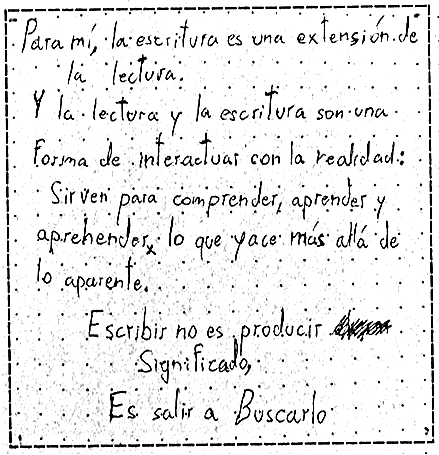 Para mí, la escritura es una extensión de
la lectura.
Y la lectura y la escritura son una
forma de interactuar con la realidad:
Sirven para comprender, aprender y
aprehender, lo que yace más allá de
lo aparente.
Escribir no es producir
Significado,
Es salir a Buscarlo